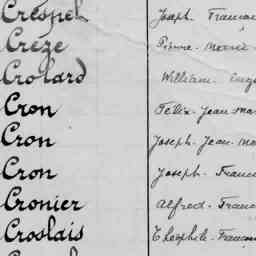 Crespel Joseph - Franço
Crèze Pierre - Marie
Crolard William - Eug
Cron Félix - Jean Ma
Cron Joseph - Jean - Ma
Cron Joseph - Franc
Cronier Alfred - Franc
Croslais Théophile - Franço